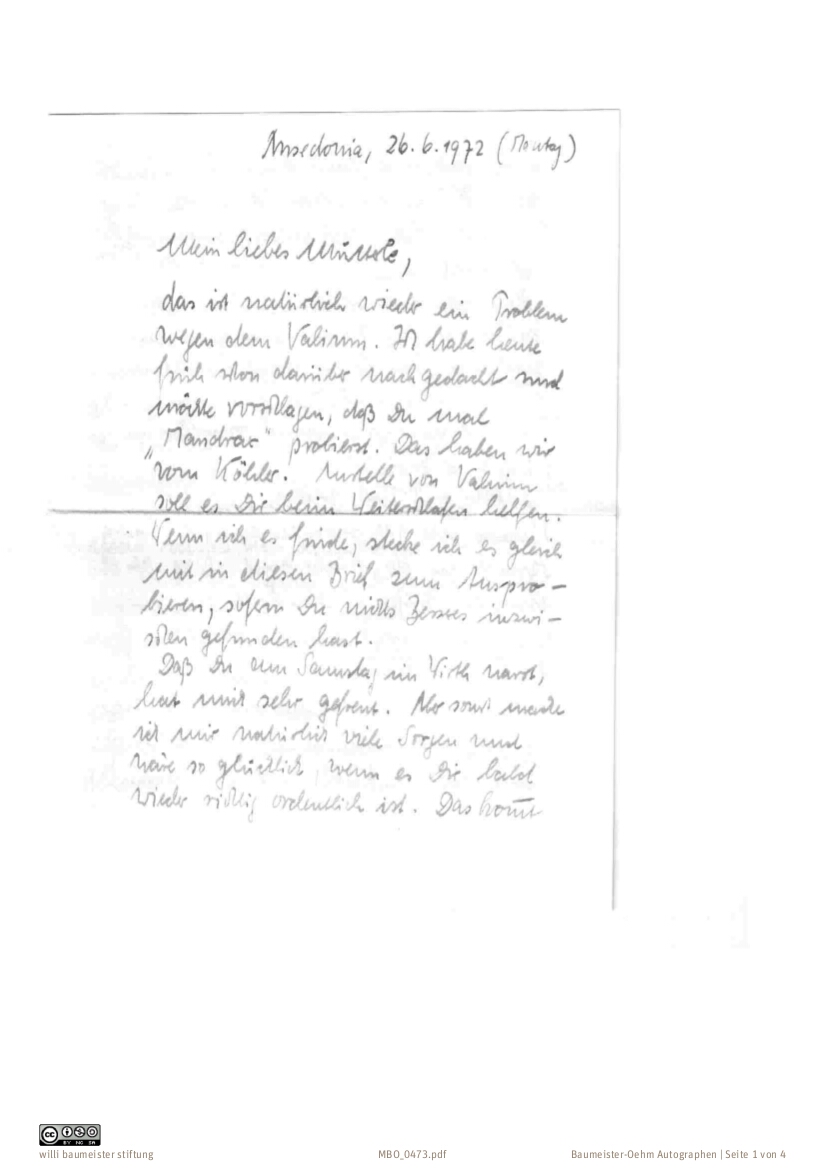 Ansedonia, 26.6.1972 (Montag)
Mein liebes Mutterle,
das ist natürlich wieder ein Problem
wegen dem Valium. Ich habe heute
früh schon darüber nachgedacht und
möchte vorschlagen, daß Du mal
„Mandrax“ probierst. Das haben wir
vom Köhler. Anstelle von Valium
soll es Dir beim Weiterschlafen helfen.
Wenn ich es finde, stecke ich es gleich
mit in diesen Brief zum Auspro-
bieren, sofern Du nichts Besseres inzwi-
schen gefunden hast.
Daß Du am Samstag im Wirth warst,
hat mich sehr gefreut. Aber sonst mache
ich mir natürlich viele Sorgen und
wäre so glücklich, wenn es Dir bald
wieder richtig ordentlich ist. Das kom̅t
BY NC SA
willi baumeister stiftung
MBO_0473.pdf
Baumeister-Oehm Autographen | Seite 1 von 4